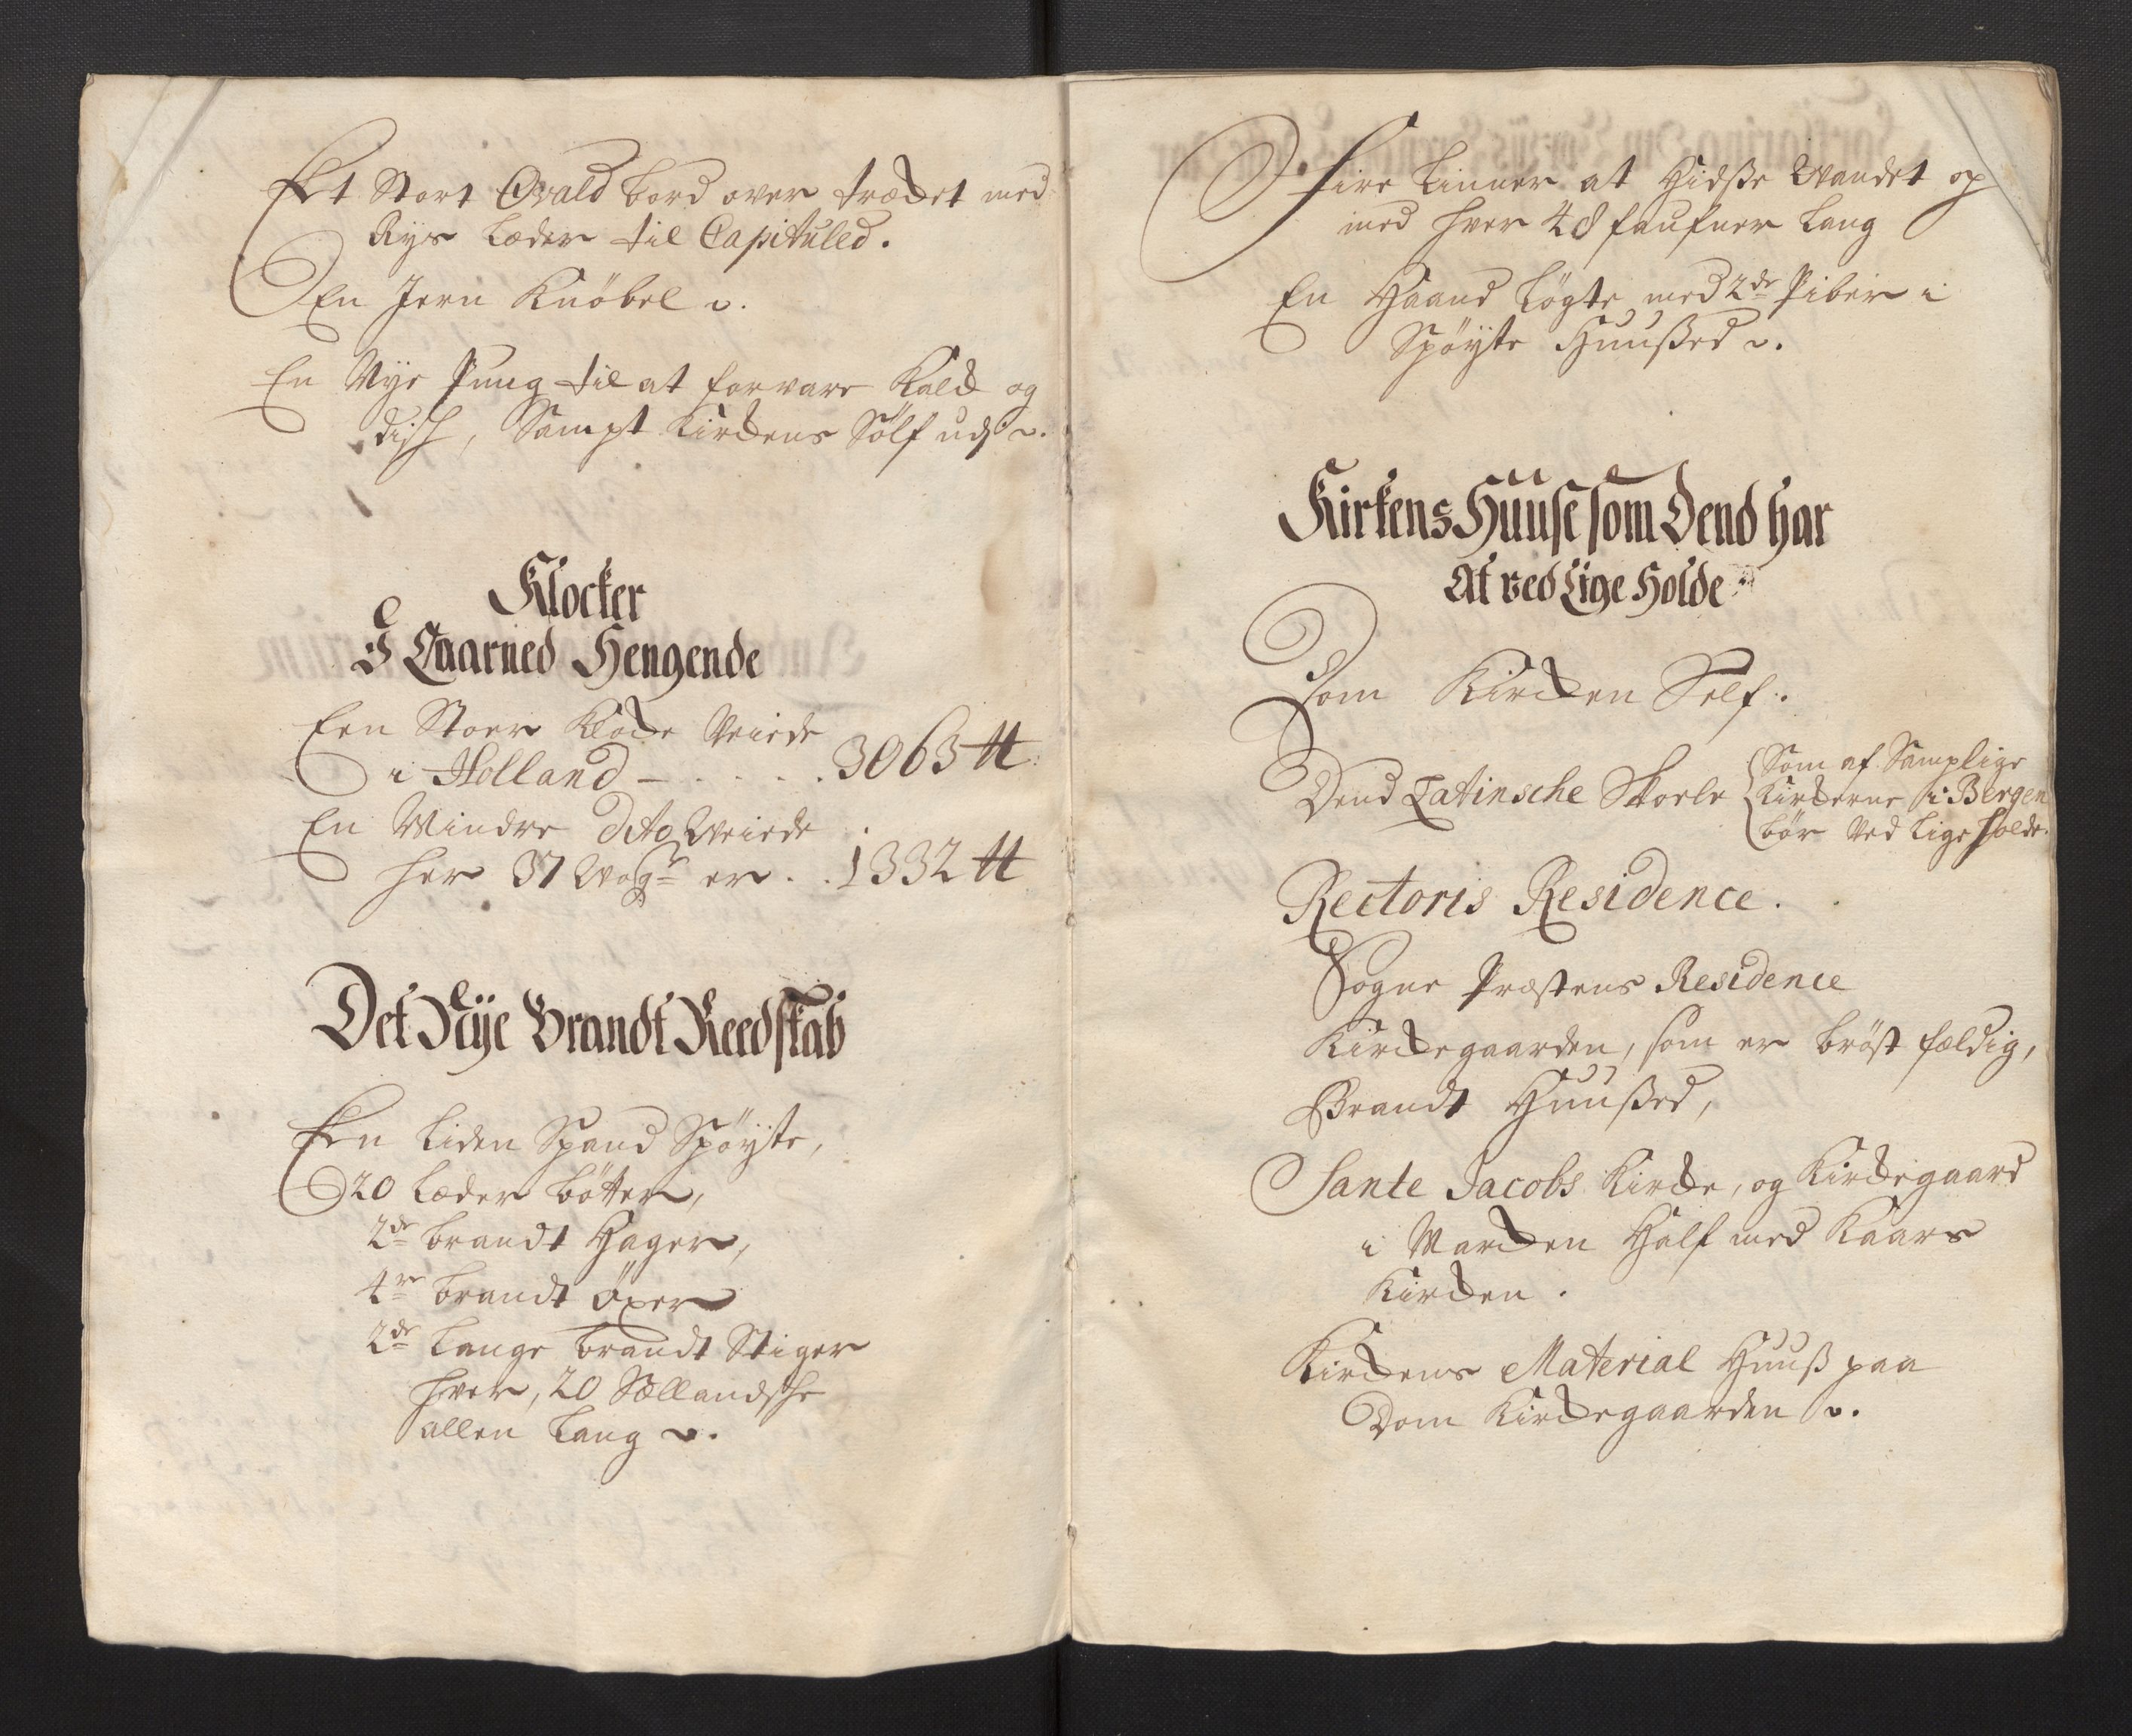 Ett Stort Ovald bord over træcket med
Rys Læder til Capituled.
En Jern Knöbel
En Nye Pung til at forvare Kalck og
disk, Sampt Kirckens Sölf udj
Klocker
I Taarned Hengende
Een Stoer Klocke Veiede
i Holland - . . . . . 3063 ℔
En Mindre dito Weiede
her 37 Wog er . . 1332 ℔
Det Nÿe Brandt Reedskab
Een liden Spand Spöyte,
20 Læder bötter,
2de brandt Hager,
4re brandt öxer
2de Lange brandt Stiger
hver, 20 Sællandske
allen Lang
Fire Linner at Hidsse Wandet op
med hver 48 faufner Lang
En Haand Løgte med 2de Piber i
Spöyte Huussed
Kirkens Huuse som Dend har
At ved Lige Holde
Dom Kircken Self.
Dend Latinsche Skoele
Som af Samplige
Kirckerne i Bergen
bör Ved Lige holde.
Rectoris Residence.
Sogne Præstens Residence
Kirckegaarden, som er bröst fældig,
Brandt Huussed,
Sante Jacobs Kircke, og Kirckegaard
i Marcken Half med Kaars
Kircken.
Kirckens Material Huuss paa
Dom Kirckegaarden